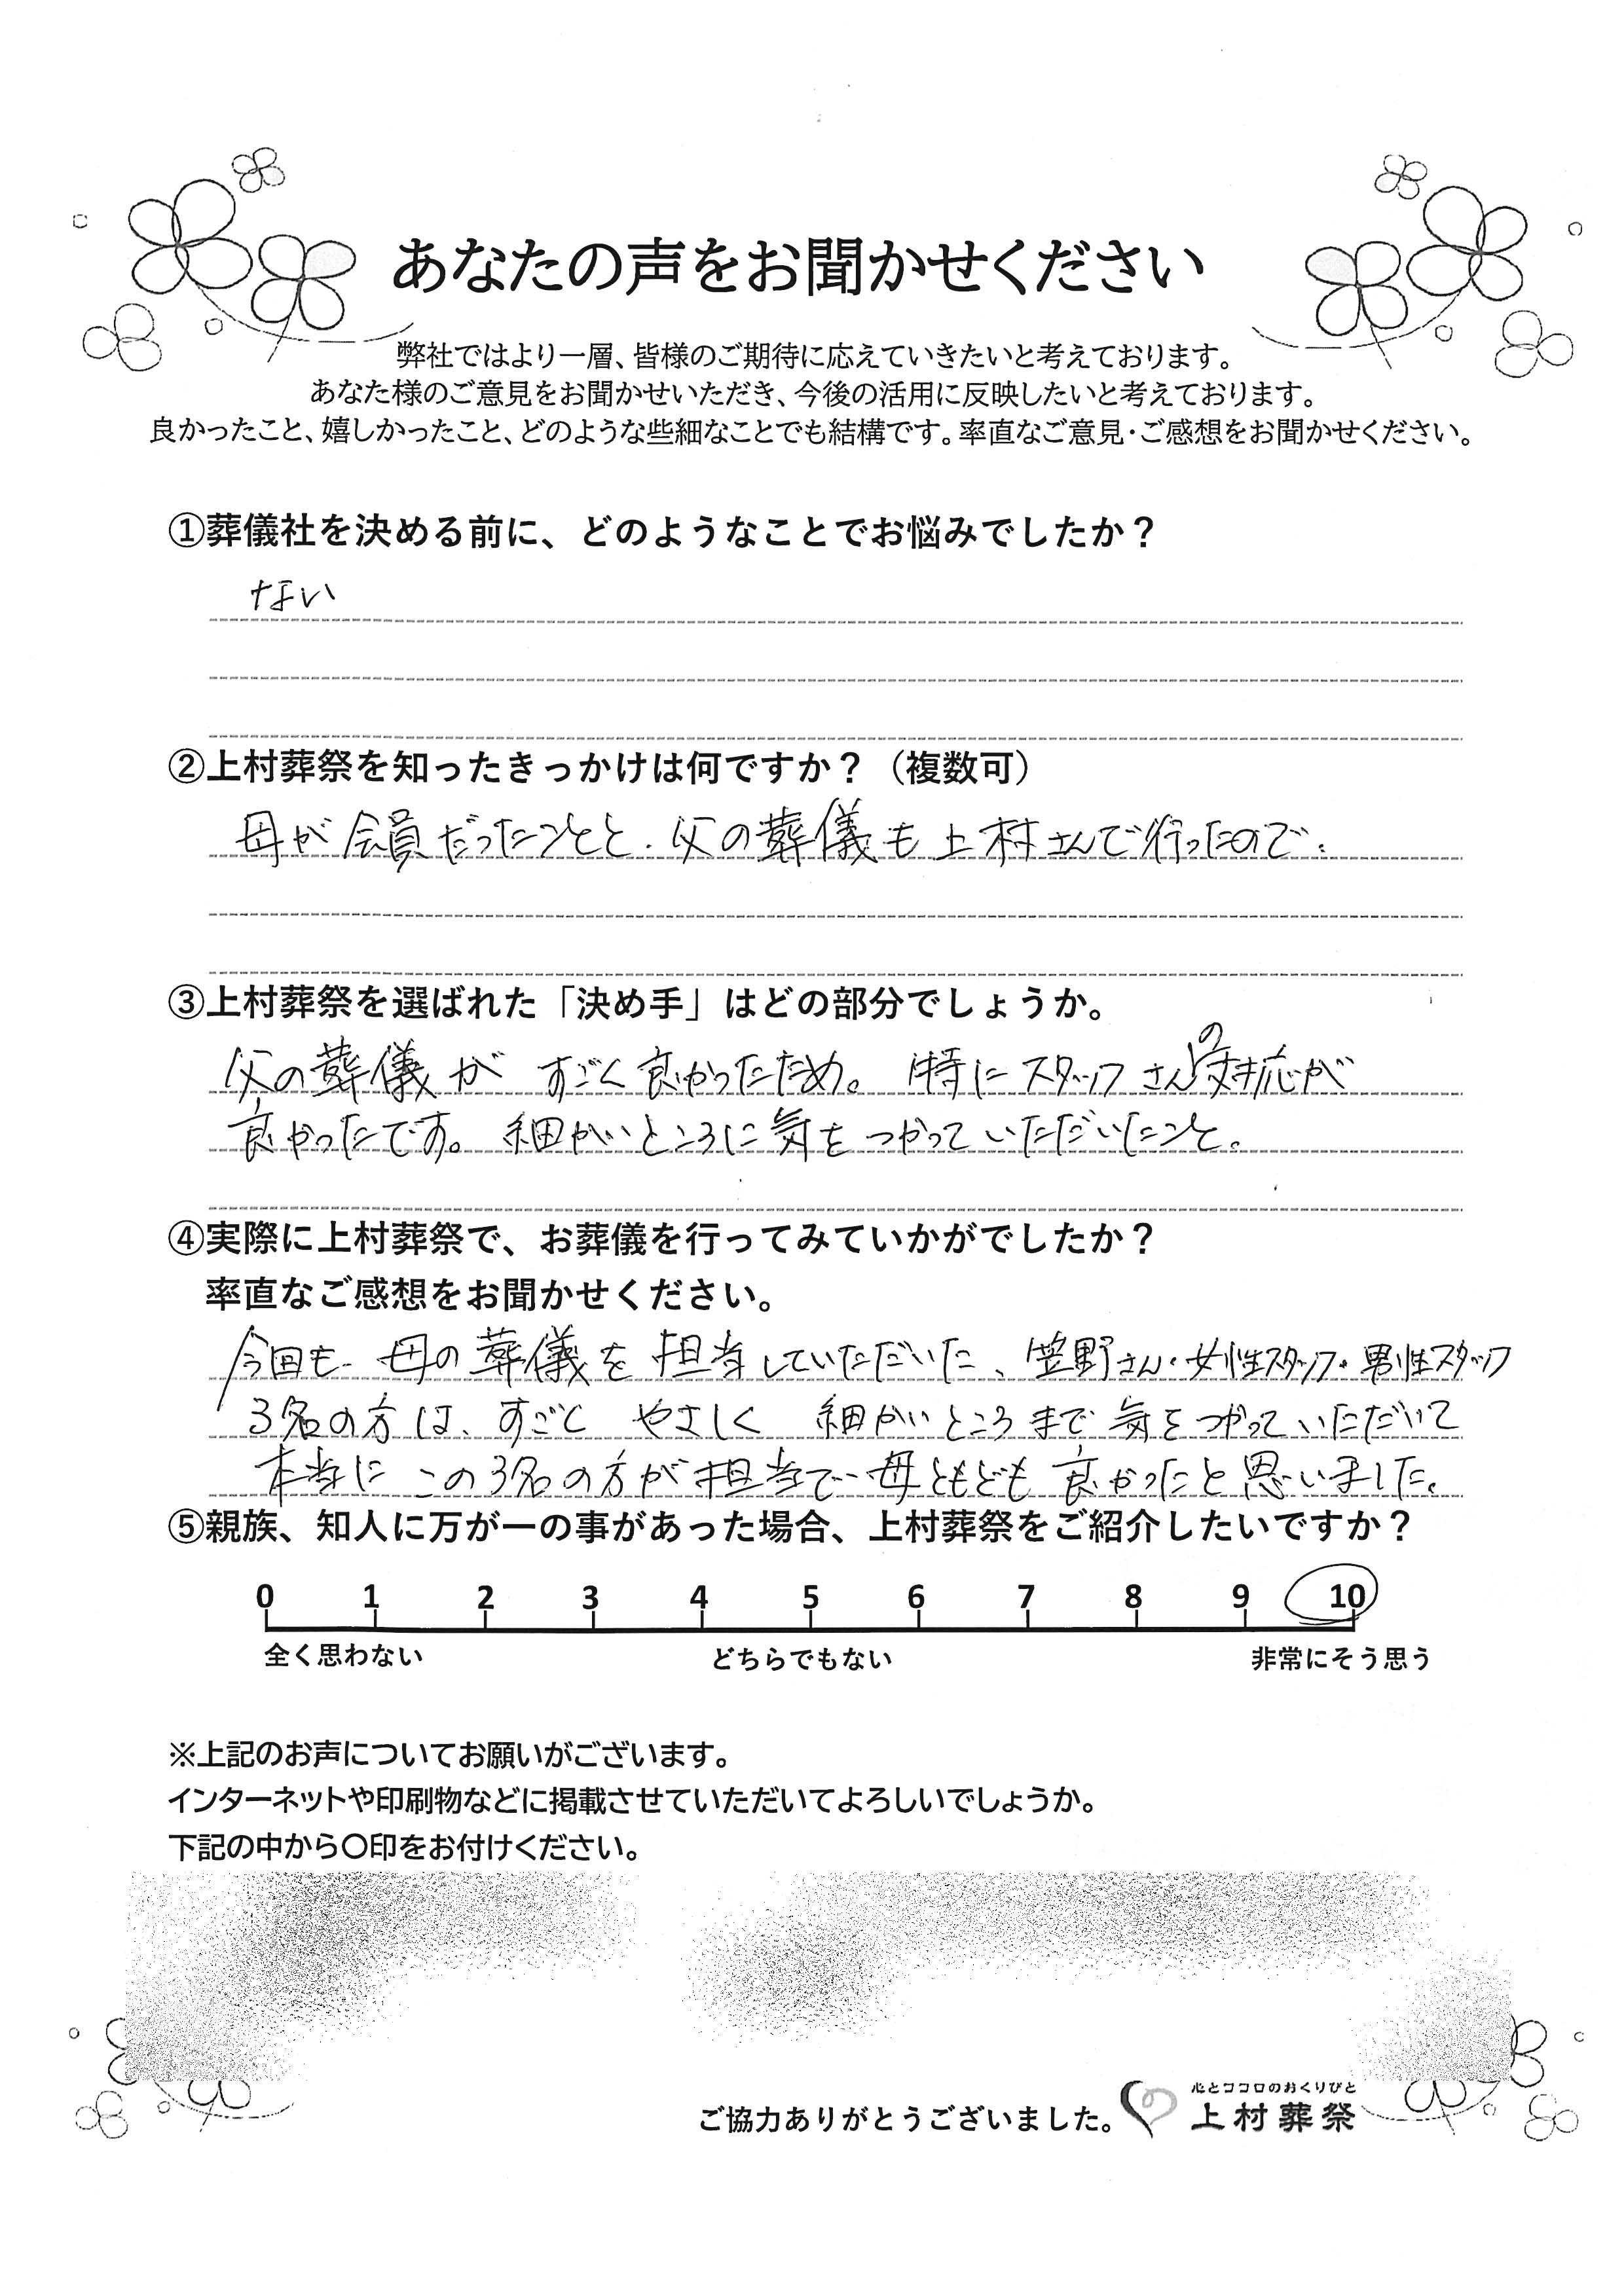 あなたの声をお聞かせください
弊社ではより一層、皆様のご期待に応えていきたいと考えております。
あなた様のご意見をお聞かせいただき、今後の活用に反映したいと考えております。
良かったこと、嬉しかったこと、どのような些細なことでも結構です。率直なご意見・ご感想をお聞かせください。
①葬儀社を決める前に、どのようなことでお悩みでしたか？
ない
②上村葬祭を知ったきっかけは何ですか？（複数可）
母が会員だったことと、父の葬儀も上村さんで行ったので。
③上村葬祭を選ばれた「決め手」はどの部分でしょうか。
父の葬儀が すごく良かったため。 特にスタッフさんの対応が
良かったです。 細かいところに気をつかっていただいたこと。
④実際に上村葬祭で、お葬儀を行ってみていかがでしたか？
率直なご感想をお聞かせください。
今回も、母の葬儀を担当していただいた、笠野さん・女性スタッフ・男性スタッフ
3名の方は、すごく やさしく 細かいところまで気をつかっていただいて
本当に この3名の方が担当で、母ともども良かったと思いました。
⑤親族、知人に万が一の事があった場合、上村葬祭をご紹介したいですか？
0 1 2 3 4 5 6 7 8 9 10
全く思わない どちらでもない 非常にそう思う
※上記のお声についてお願いがございます。
インターネットや印刷物などに掲載させていただいてよろしいでしょうか。
下記の中から〇印をお付けください。
心とココロのおくりびと
ご協力ありがとうございました。 上村葬祭